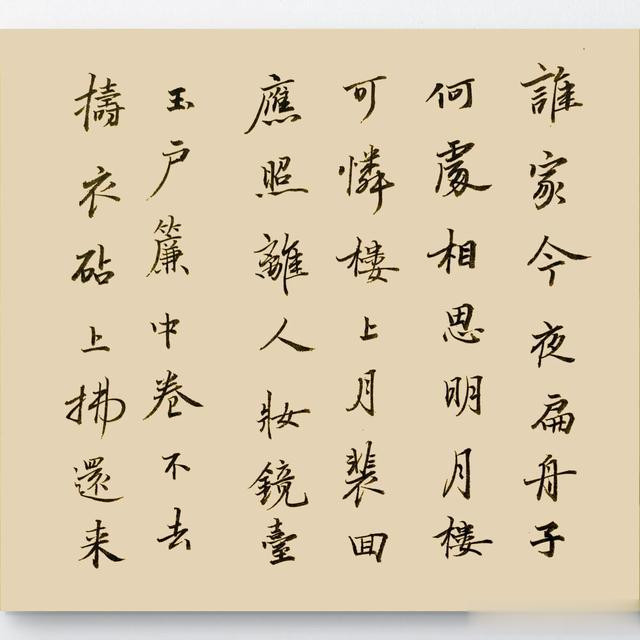 誰家今夜扁舟子
何處相思明月樓
可憐樓上月裴回
應照離人妝鏡臺
玉户簾中卷不去
擣衣砧上拂還来